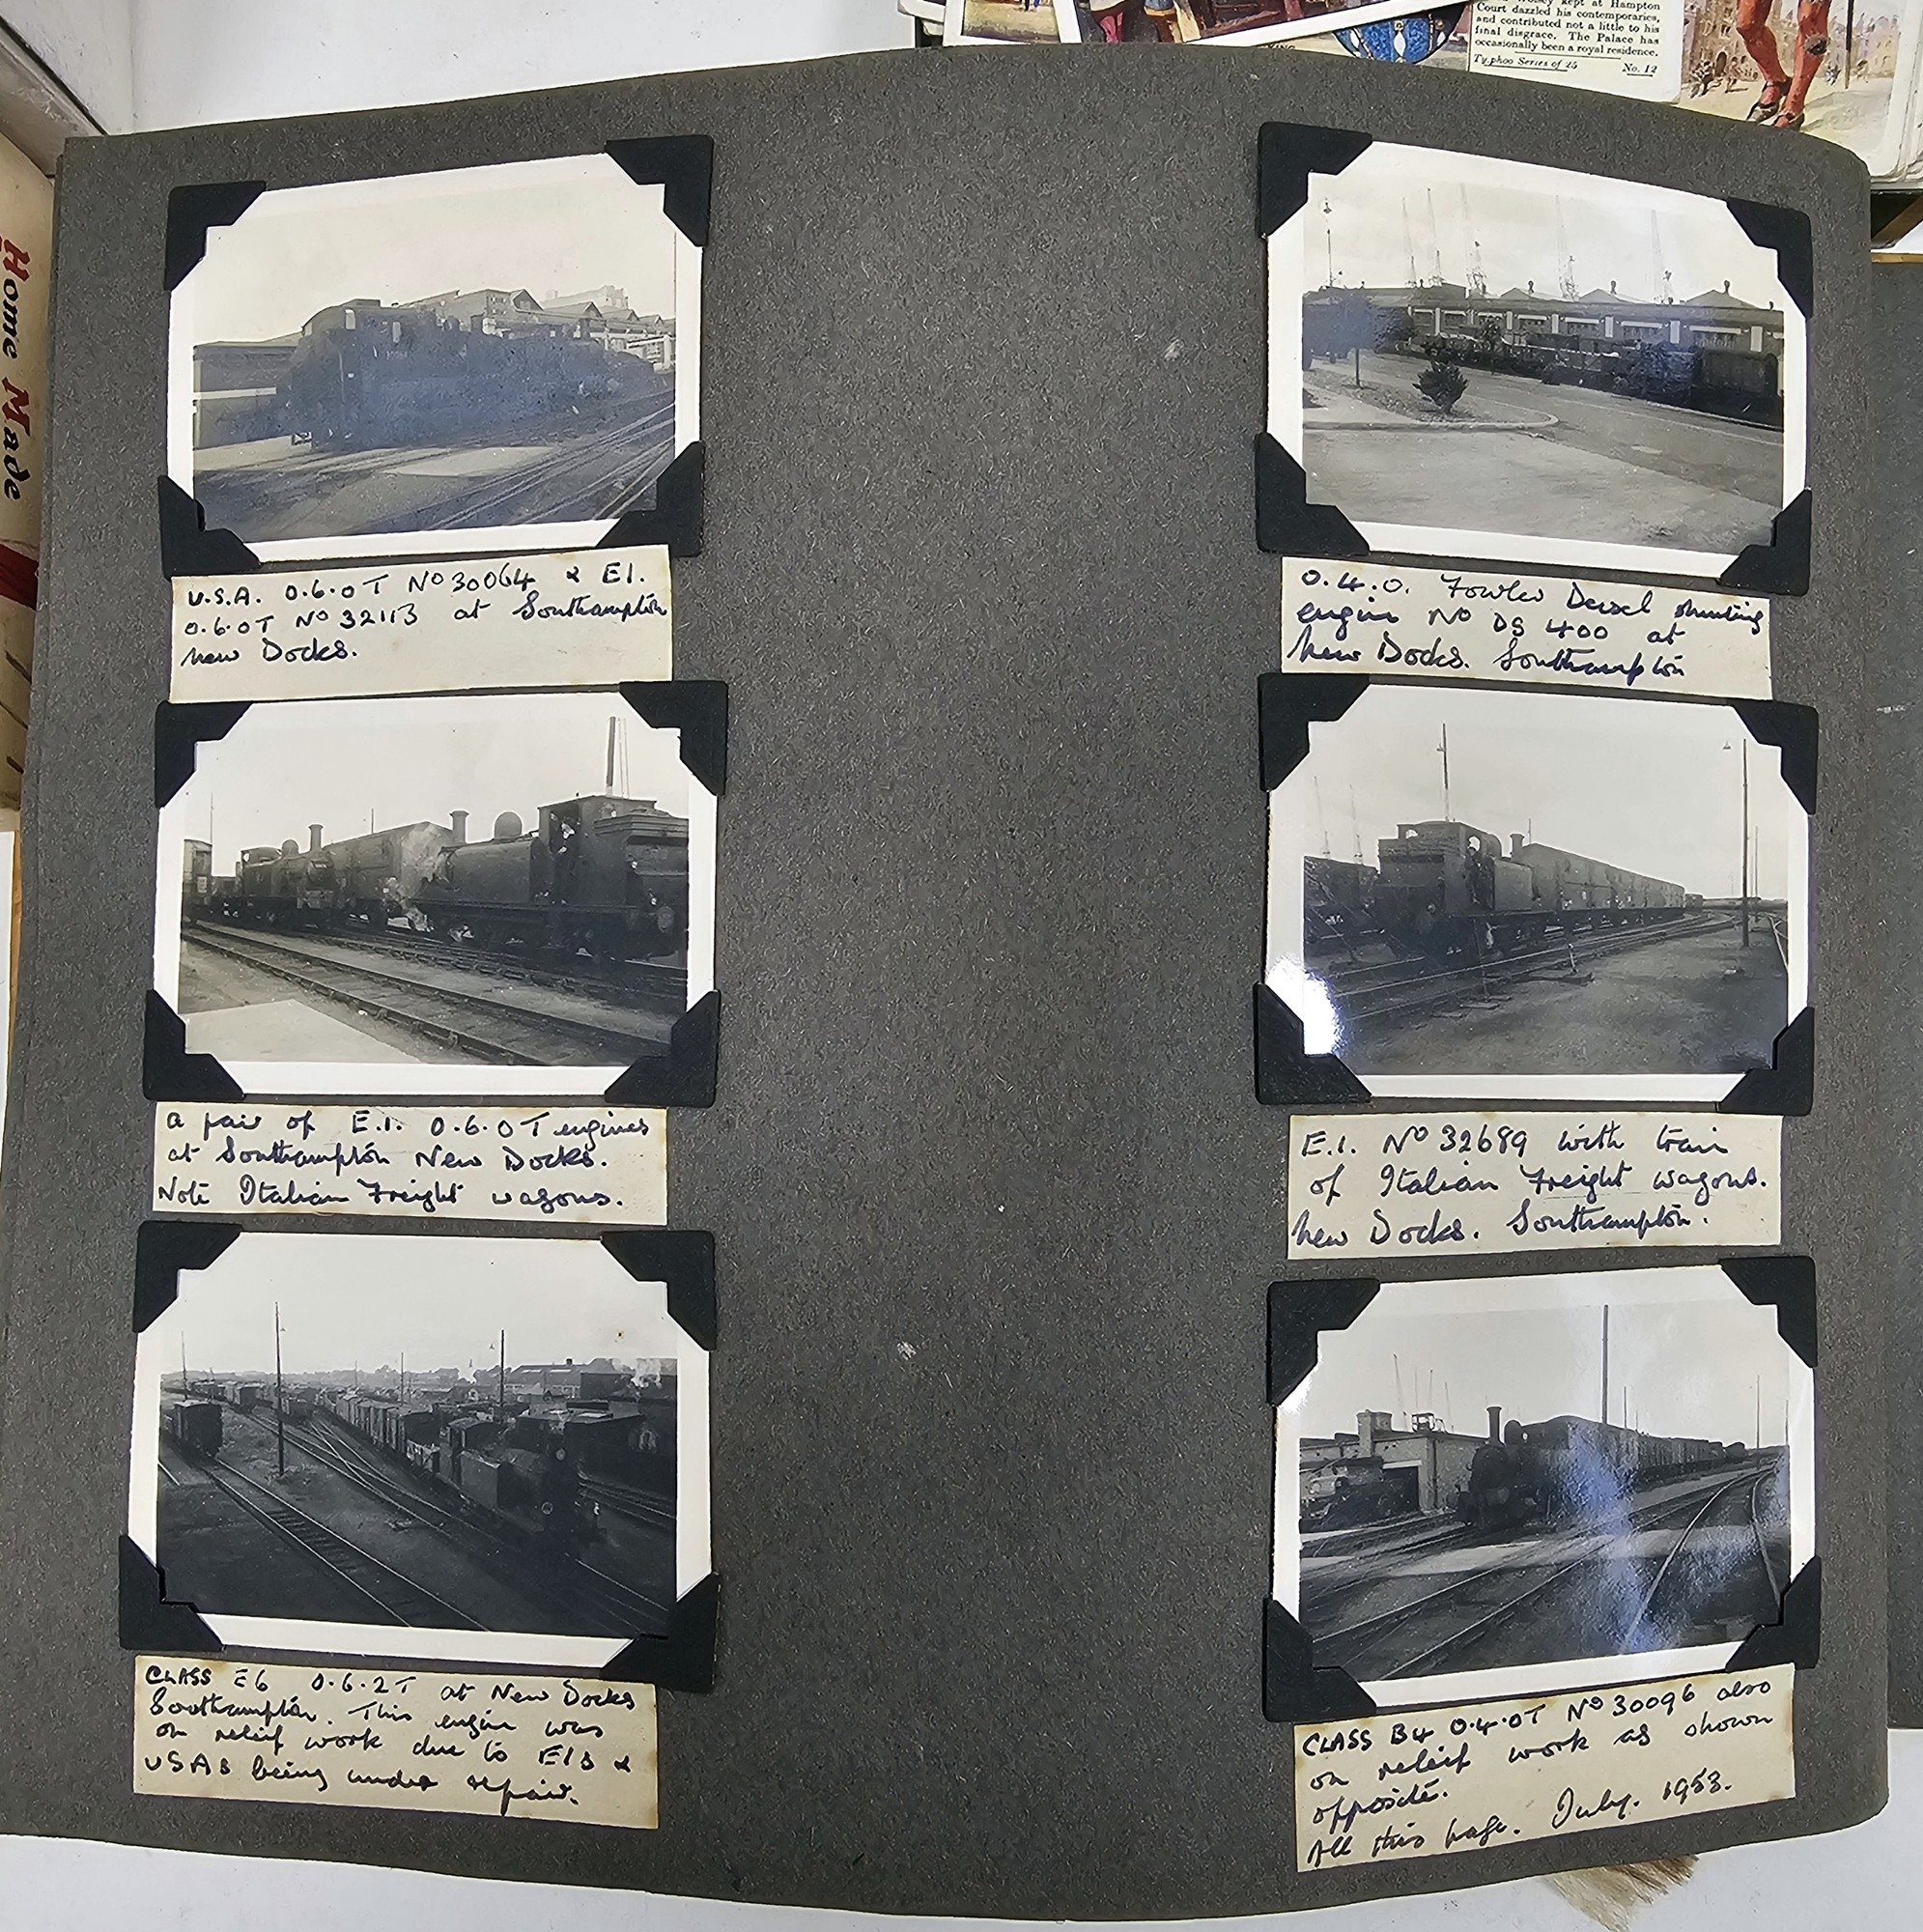 Wolsey kept at Hampton
Court dazzled his contemporaries,
and contributed not a little to his
final disgrace. The Palace has
occasionally been a royal residence.
Ty.phoo Series of 25 No. 12
Home Made
U.S.A. 0.6.0T Nº 30064 & E1.
0.6.0T Nº 32113 at Southampton
New Docks.
0.4.0. Fowler Diesel shunting
engine Nº DS 400 at
New Docks. Southampton
A pair of E.1. 0.6.0T engines
at Southampton New Docks.
Note Italian Freight wagons.
E.1. Nº 32689 with train
of Italian Freight wagons.
New Docks. Southampton.
CLASS E6 0.6.2T at New Docks
Southampton. This engine was
on relief work due to E1s &
USAs being under repair.
CLASS B4 0.4.0T Nº 30096 also
on releif work as shown
opposite.
All this page. July. 1953.